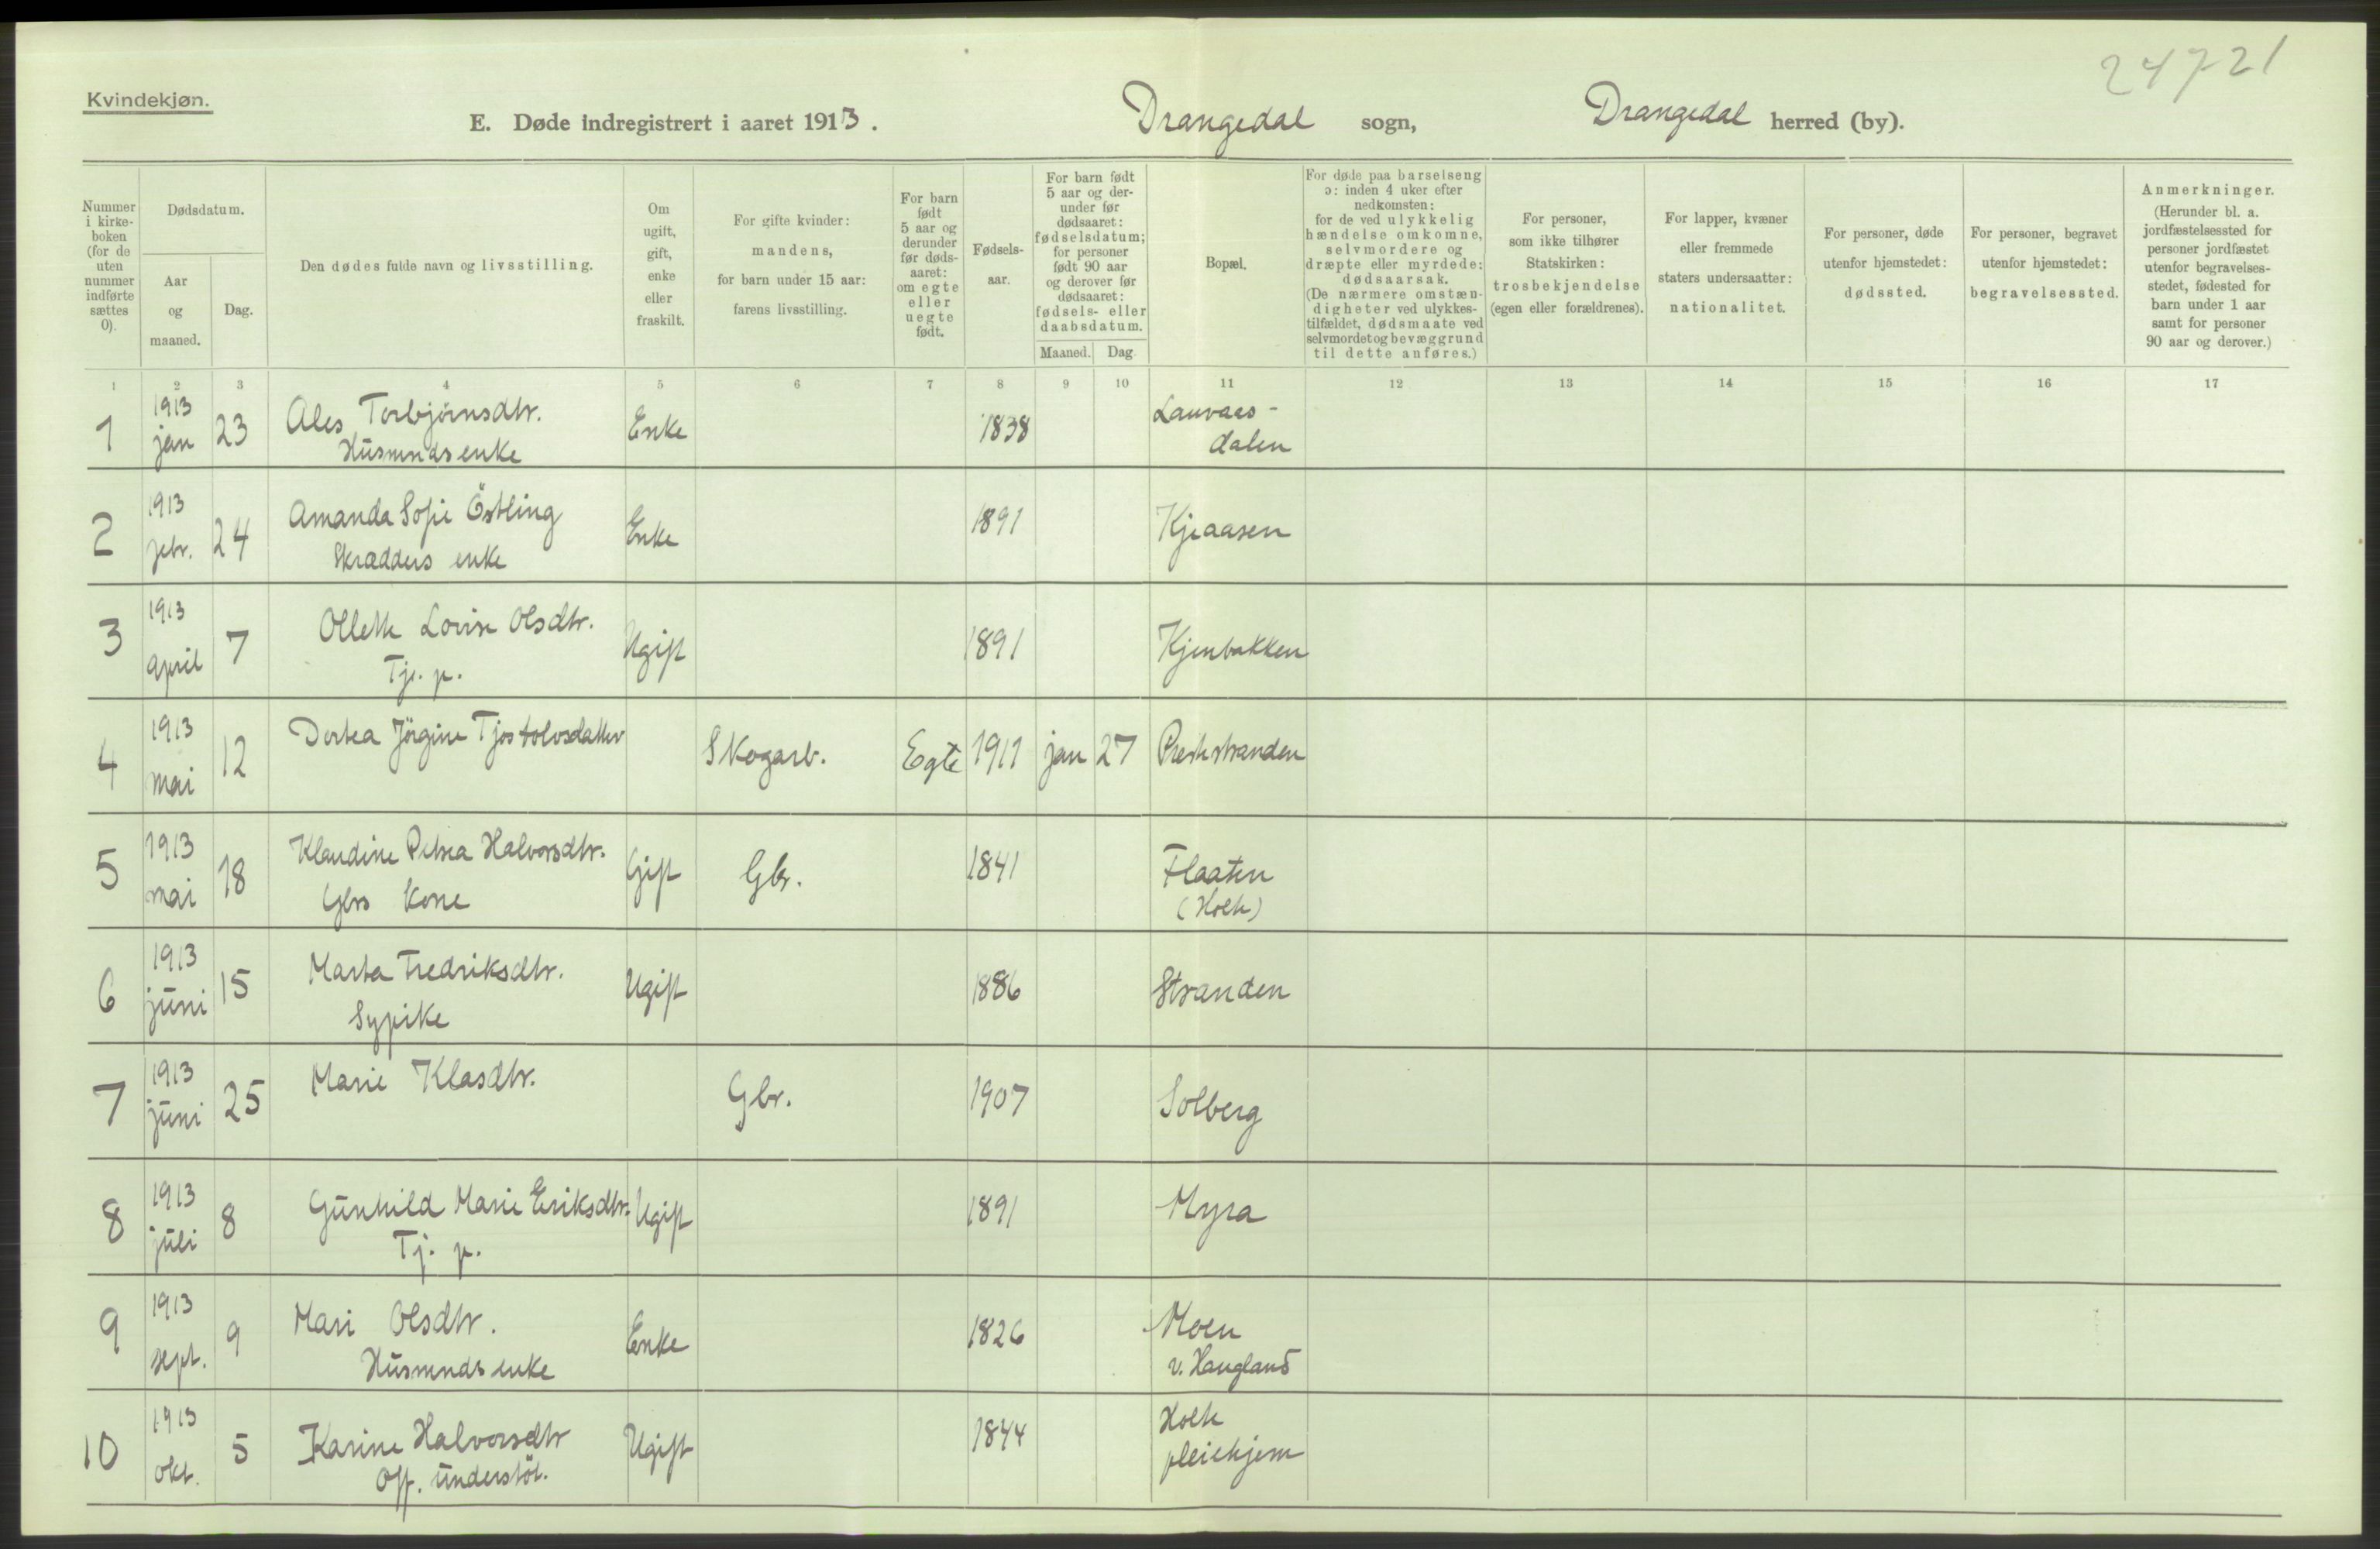 24721
Kvindekjøn.
E. Døde indregistrert i aaret 1913. Drangedal sogn, Drangedal herred (by).
Nummer i kirkeboken (for de uten nummer indførte sættes 0).
Dødsdatum.
Aar og maaned.
Dag.
Den dødes fulde navn og livsstilling.
Om ugift, gift, enke eller fraskilt.
For gifte kvinder: mandens, for barn under 15 aar: farens livsstilling.
For barn født 5 aar og derunder før dødsaaret: om egte eller uegte født.
Fødselsaar.
For barn født 5 aar og derunder før dødsaaret: fødselsdatum; for personer født 90 aar og derover før dødsaaret: fødsels- eller daabsdatum.
Maaned. Dag
Bopæl.
For døde paa barselseng ɔ: inden 4 uker efter nedkomsten; for de ved ulykkelig hændelse omkomne, selvmordere og dræpte eller myrdede: dødsaarsak. (De nærmere omstændigheter ved ulykkestilfældet, dødsmaate ved selvmordet og bevæggrund til dette anføres.)
For personer, som ikke tilhører Statskirken: trosbekjendelse (egen eller forældrenes).
For lapper, kvæner eller fremmede staters undersaatter: nationalitet.
For personer, døde utenfor hjemstedet: dødssted.
For personer, begravet utenfor hjemstedet: begravelsessted.
Anmerkninger. (Herunder bl. a. jordfæstelsessted for personer jordfæstet utenfor begravelsesstedet, fødested for barn under 1 aar samt for personer 90 aar og derover.)
1 2 3 4 5 6 7 8 9 10 11 12 13 14 15 16 17
1 1913 jan 23 Ales Torbjörnsdtr. Husmnds enke Enke 1838 Lauvaasdalen
2 1913 febr. 24 Amanda Sofie Östling Skrædders enke Enke 1891 Kjeaasen
3 1913 april 7 Ollette Lovise Olsdtr. Tj. p. Ugift 1891 Kjenbakken
4 1913 mai 12 Dortea Jörgine Tjostolvsdatter Skogarb. Egte 1911 jan 27 Prestestranden
5 1913 mai 18 Klaudine Petrea Halvorsdtr. Gbrs kone Gift Gbr. 1841 Flaaten (Holte)
6 1913 juni 15 Marta Fredriksdtr. Sypike Ugift 1886 Stranden
7 1913 juni 25 Marie Klasdtr. Gbr. 1907 Solberg
8 1913 juli 8 Gunhild Marie Eriksdtr. Tj. p. Ugift 1891 Myra
9 1913 sept. 9 Mari Olsdtr. Husmnds enke Enke 1826 Moen v. Haugland
10 1913 okt. 5 Karine Halvorsdtr Off. understöt. Ugift 1844 Holte pleiehjem